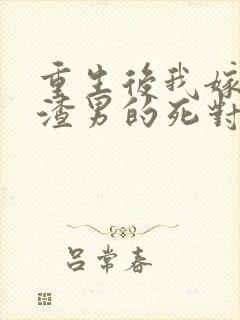 重生後我嫁
渣男的死對
呂常春